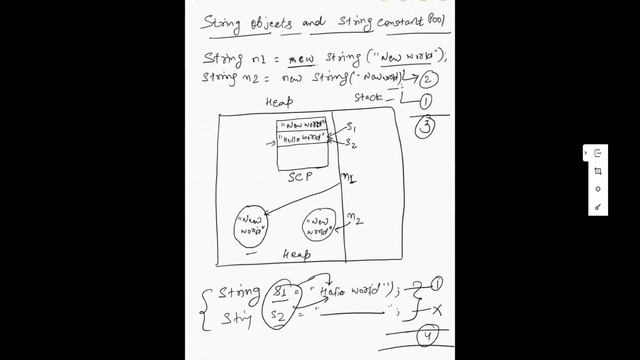 String objects and String constant Pool
String n1 = new String ("New world");
String n2 = new String("New world") → 2
Heap
Stack - 1
3
"New world"
"Hello world"
s1
s2
SCP
n1
"New world"
"New world"
n2
Heap
String s1 = "Hello world"); 1
Strin s2 = " "; x
4